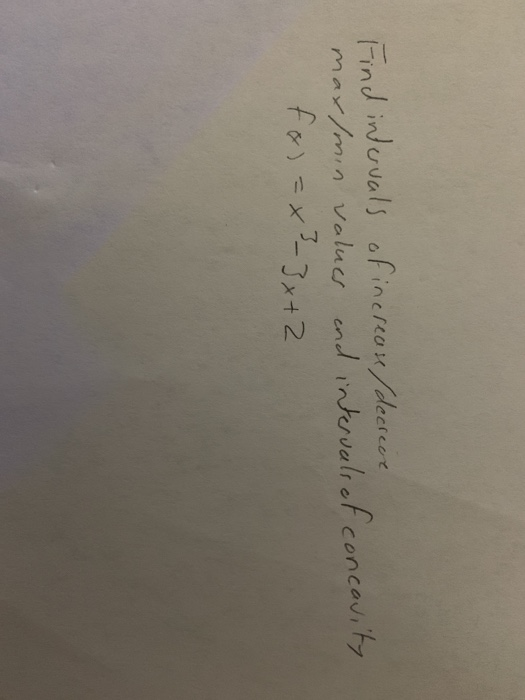 Find intervals of increase/decrease
max/min values and intervals of concavity
f(x) = x³ - 3x + 2